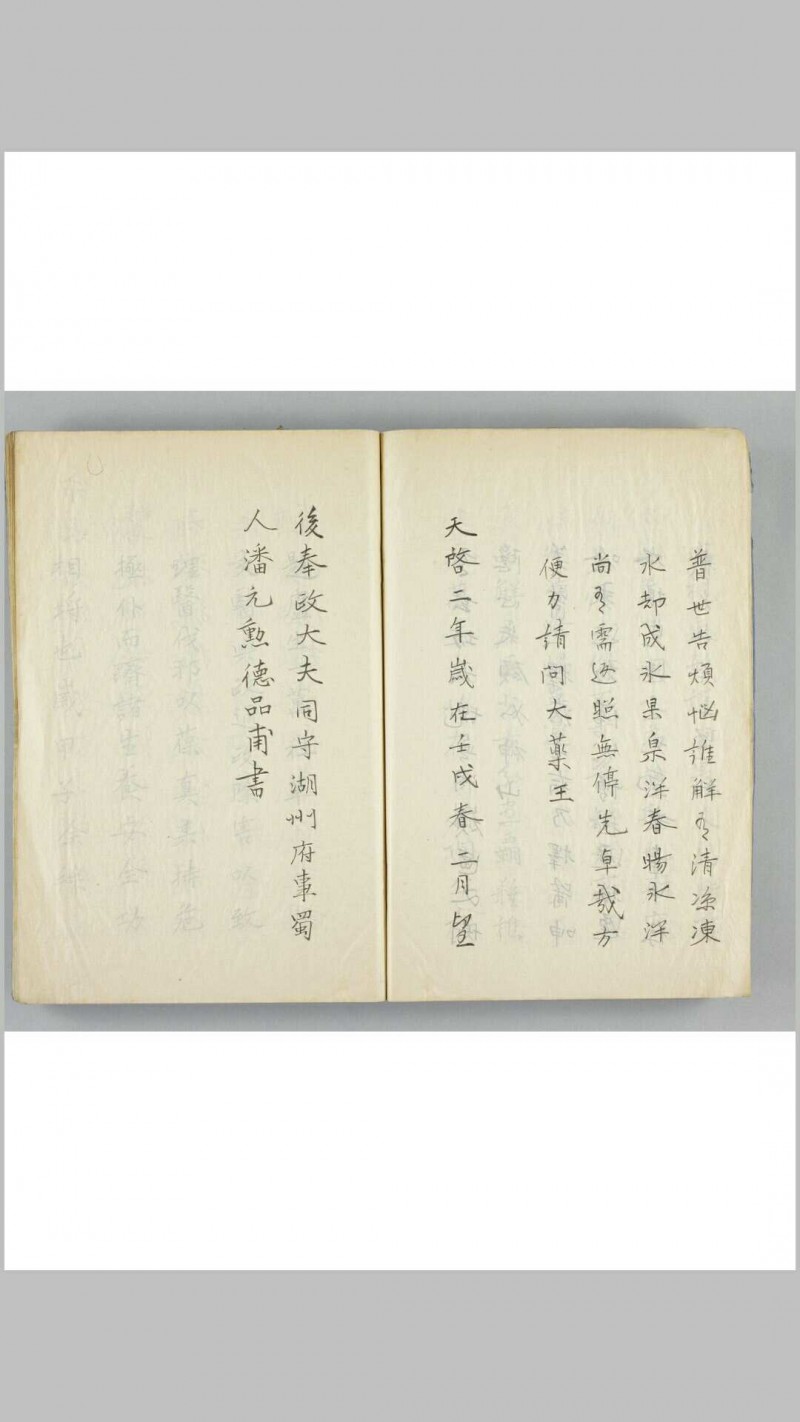 普世告煩惱誰解有清涼凍
水却成氷果臬洋春暘氷洋
尚有需遍照無停先卓哉方
便力請問大藥王
天啓二年歲在壬戌春二月望
後奉政大夫同守湖州府事蜀
人潘元勲德品甫書